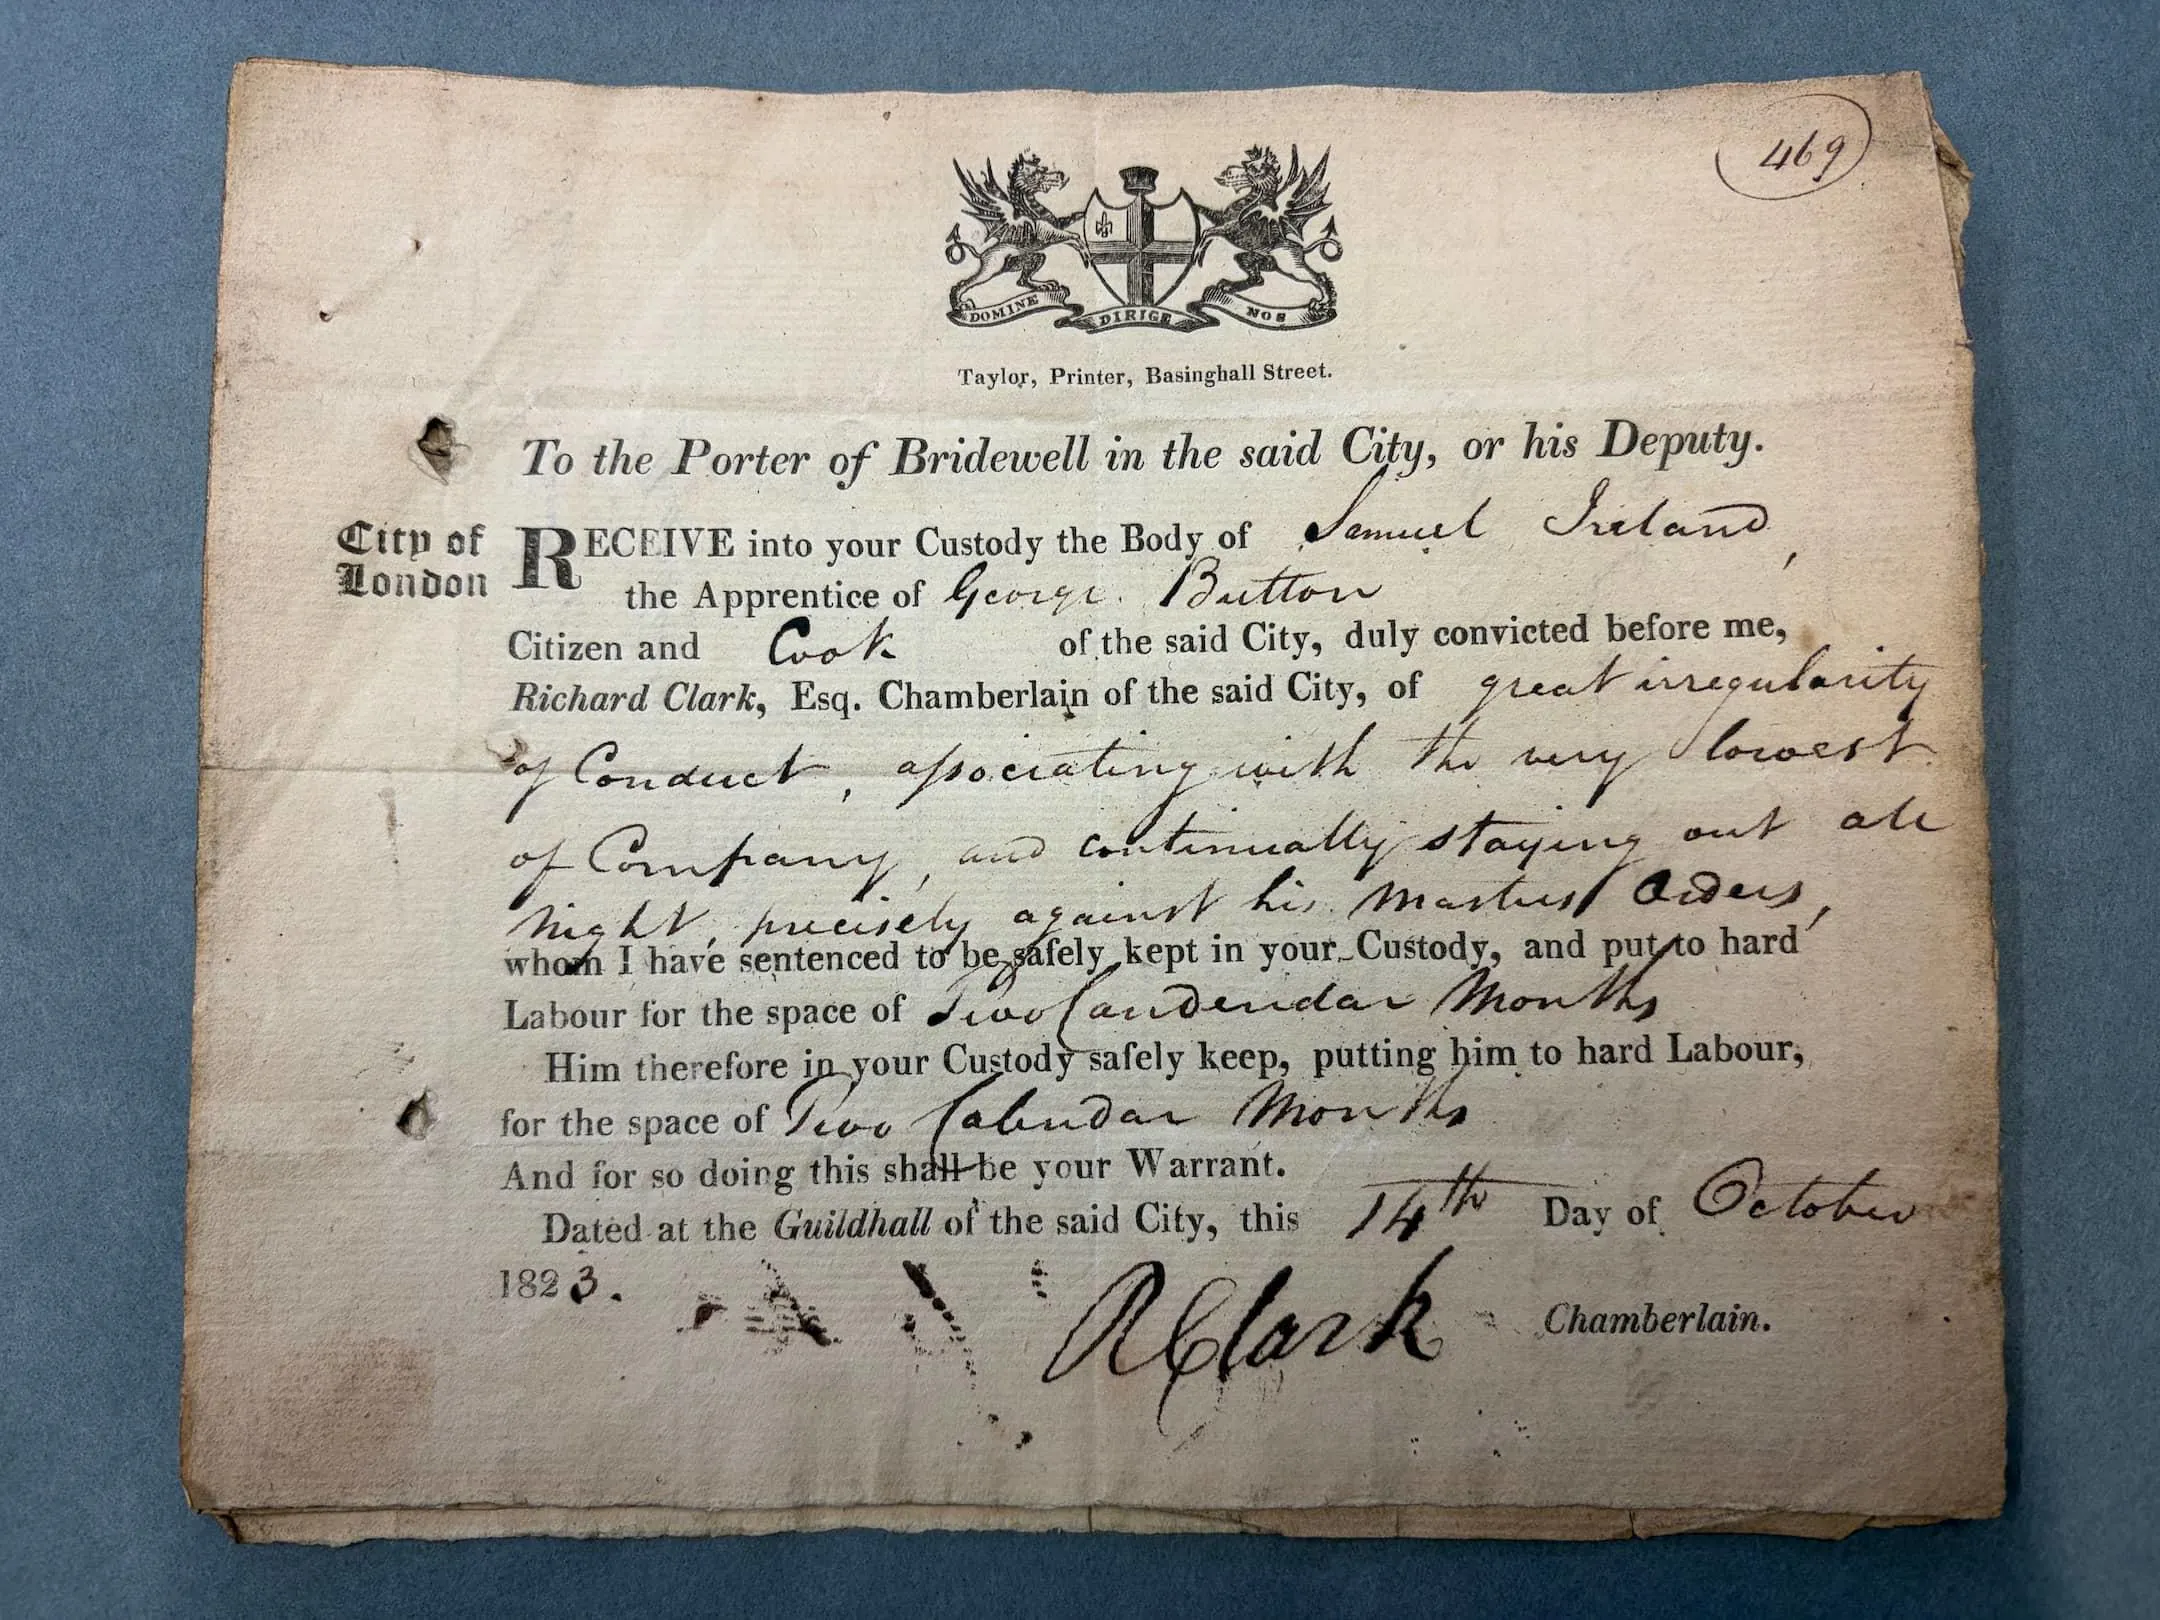 469
DOMINE DIRIGE NOS
Taylor, Printer, Basinghall Street.
To the Porter of Bridewell in the said City, or his Deputy.
City of
London
RECEIVE into your Custody the Body of Samuel Ireland,
the Apprentice of George Button
Citizen and Cook of the said City, duly convicted before me,
Richard Clark, Esq. Chamberlain of the said City, of great irregularity
of Conduct, associating with the very lowest
of Company, and continually staying out all
Night, precisely against his Masters Orders,
whom I have sentenced to be safely kept in your Custody, and put to hard
Labour for the space of Two Candendar Months
Him therefore in your Custody safely keep, putting him to hard Labour,
for the space of Two Calendar Months
And for so doing this shall be your Warrant.
Dated at the Guildhall of the said City, this 14th Day of October
1823.
RClark Chamberlain.